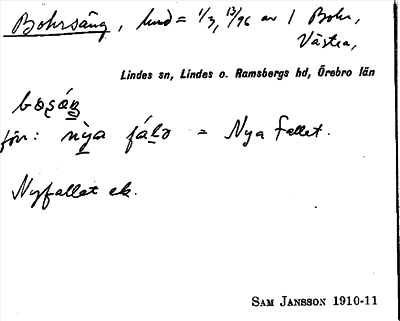 Bohrsäng, hmd = 1/3, 13/96 av 1 Bohr,
Västra,
Lindes sn, Lindes o. Ramsbergs hd, Örebro län
bosáŋ
förr: nỳa fálə = Nya Fallet.
Nyfallet ek.
SAM JANSSON 1910-11